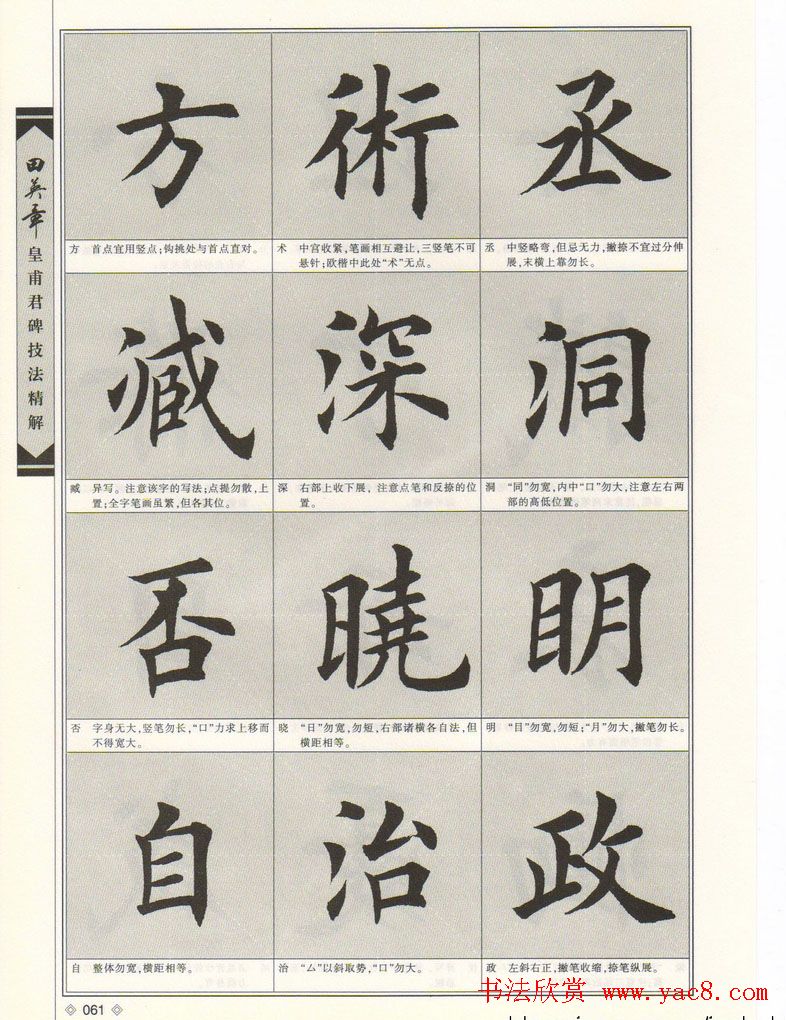 田英章
皇甫君碑技法精解
方 術 丞
方 首点宜用竖点;钩挑处与首点直对。
术 中宫收紧,笔画相互避让,三竖笔不可
悬针;欧楷中此处“术”无点。
丞 中竖略弯,但忌无力,撇捺不宜过分伸
展,末横上靠勿长。
臧 深 洞
臧 异写。注意该字的写法;点提勿散,上
置;全字笔画虽繁,但各其位。
深 右部上收下展,注意点笔和反捺的位
置。
洞 “同”勿宽,内中“口”勿大,注意左右两
部的高低位置。
否 曉 明
否 字身无大,竖笔勿长,“口”力求上移而
不得宽大。
晓 “日”勿宽,勿短,右部诸横各自法,但
横距相等。
明 “目”勿宽,勿短;“月”勿大,撇笔勿长。
自 治 政
自 整体勿宽,横距相等。
治 “厶”以斜取势,“口”勿大。
政 左斜右正,撇笔收缩,捺笔纵展。
书法欣赏 www.yac8.com
061